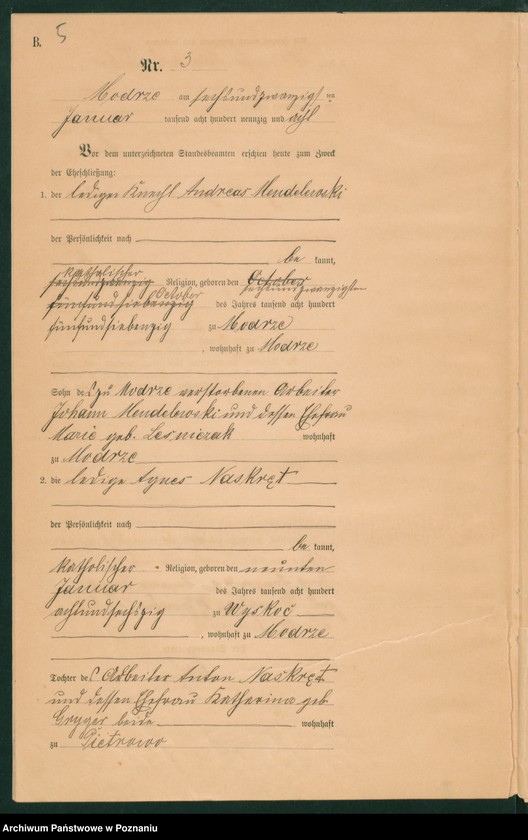 B. 5
Nr. 3
Modrze am sechsundzwanzigsten
Januar tausend acht hundert neunzig und acht
Vor dem unterzeichneten Standesbeamten erschien heute zum Zweck
der Eheschließung:
1. der ledige Knecht Andreas Mendelewski
der Persönlichkeit nach
be kannt,
katholischer
Religion, geboren den October
sechsundzwanzigsten
fünfundsiebenzig October des Jahres tausend acht hundert
fünfundsiebenzig zu Modrze
, wohnhaft zu Modrze
Sohn des zu Modrze verstorbenen Arbeiter
Johann Mendelewski und dessen Ehefrau
Marie geb. Lesniczak wohnhaft
zu Modrze
2. die ledige Agnes Naskręt
der Persönlichkeit nach
be kannt,
katholischer Religion, geboren den neunten
Januar des Jahres tausend acht hundert
achtundsechzig zu Wyskoć
, wohnhaft zu Modrze
Tochter des Arbeiter Anton Naskręt
und dessen Ehefrau Katharina geb
Gryger beide wohnhaft
zu Pietrowo
Archiwum Państwowe w Poznaniu